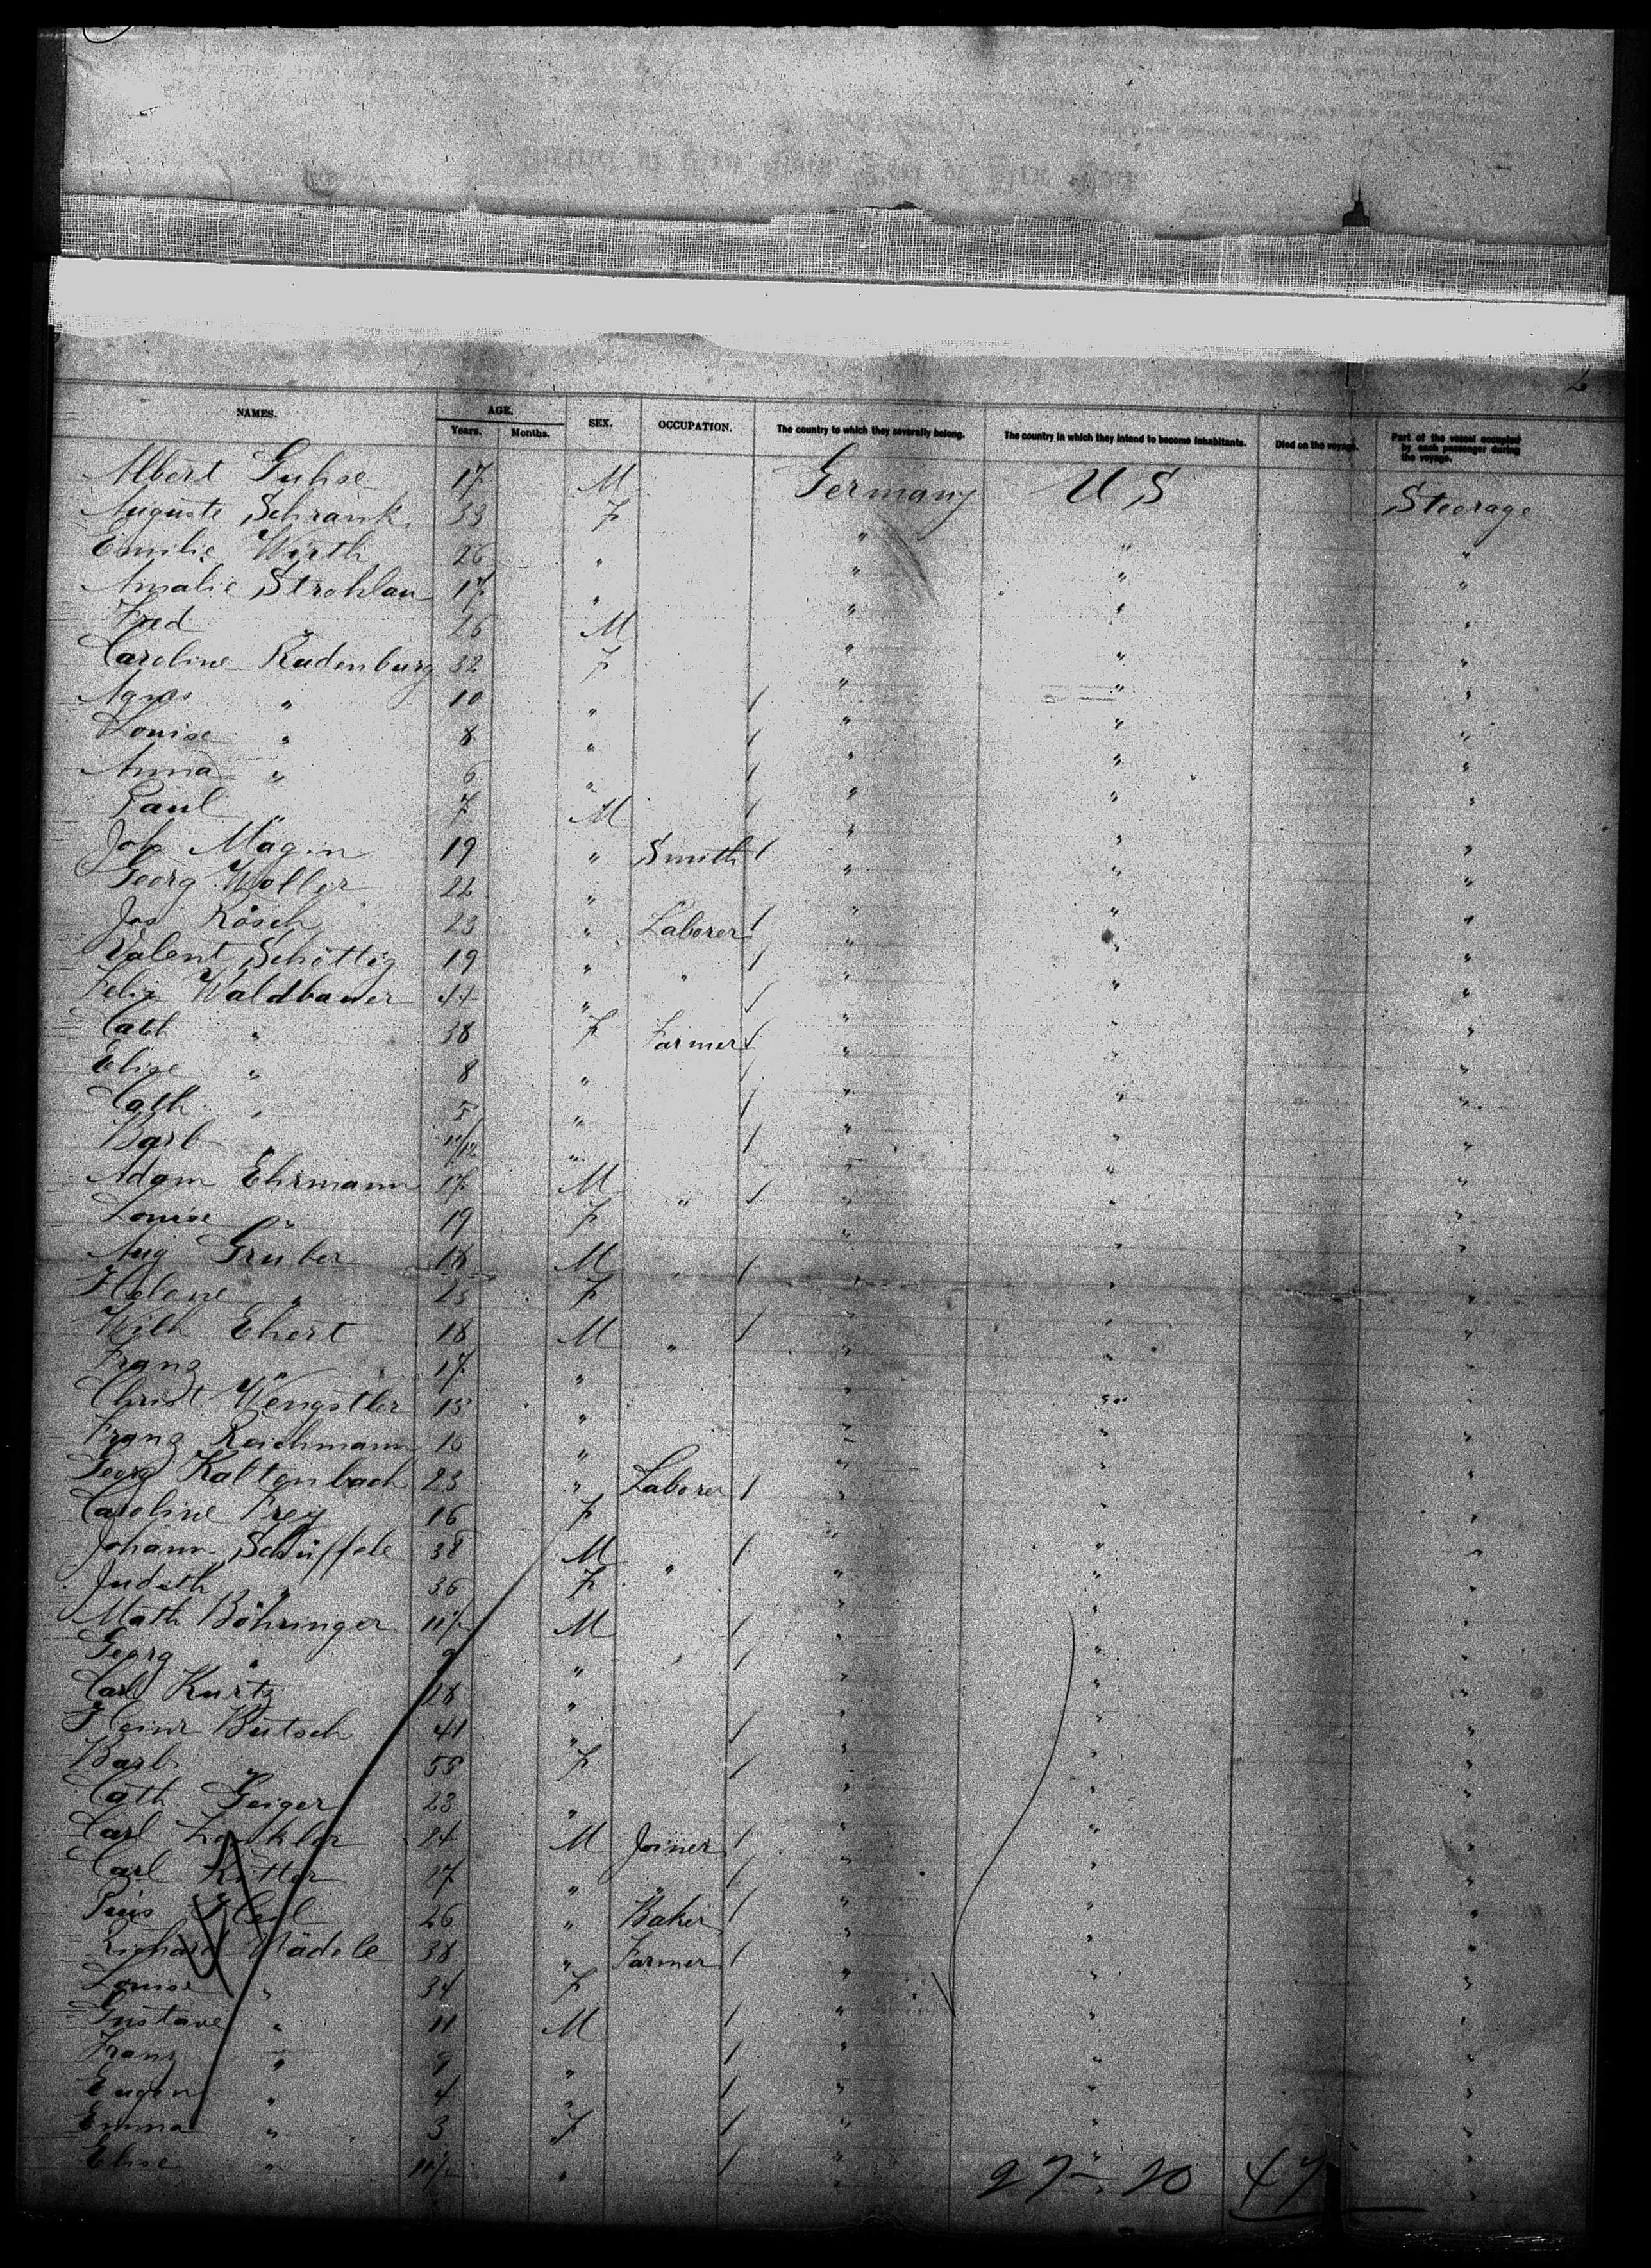 NAMES. AGE. SEX. OCCUPATION. The country to which they severally belong. The country in which they intend to become inhabitants. Died on the voyage. Part of the vessel occupied by each passenger during the voyage.
Years. Months.
Albert Guhse 17 M Germany U S Steerage
Auguste Schrank 33 F " " "
Emilie Wirth 26 " " " "
Amalie Strohlau 17 " " " "
Fred " 26 M " " "
Caroline Rudenburg 32 F " " "
Agnes " 10 " " " "
Louise " 8 " " " "
Anna " 6 " " " "
Paul " 7 M " " "
Joh Magin 19 " Smith " " "
Georg Woller 22 " " " "
Jos Rösch 23 " Laborer " " "
Valent Schöttig 19 " " " " "
Felix Waldbauer 44 " " " "
Cath " 38 F Farmer " " "
Elise " 8 " " " "
Cath " 5 " " " "
Barb " 11/12 " " " "
Adam Ehrmann 17 M " " " "
Louise " 19 F " " "
Aug Gruber 18 M " " " "
Helene " 23 F " " "
Wilh Ehert 18 M " " " "
Franz " 17 " " " "
Christ Wengstler 15 " " " "
Franz Reichmann 16 " " " "
Georg Kaltenbach 23 " Laborer " " "
Caroline Frey 16 F " " "
Johann Schüffele 38 M " " " "
Judith " 36 F " " "
Math Böhringer 11/ M " " "
Georg " 9 " " " "
Carl Kurtz 18 " " " "
Heinr Butsch 41 " " " "
Barb " 55 F " " "
Cath Geiger 23 " " " "
Carl 24 M Joiner " " "
Carl Ritter 27 " " " " "
Pius 26 " Baker " " "
Richard Nädele 38 " Farmer " " "
Louise " 34 F " " "
Gustave " 11 M " " "
Franz " 9 " " " "
Eugen " 4 " " " "
Emma " 3 F " " "
Elise " 11/ " " " "
27 - 20 47